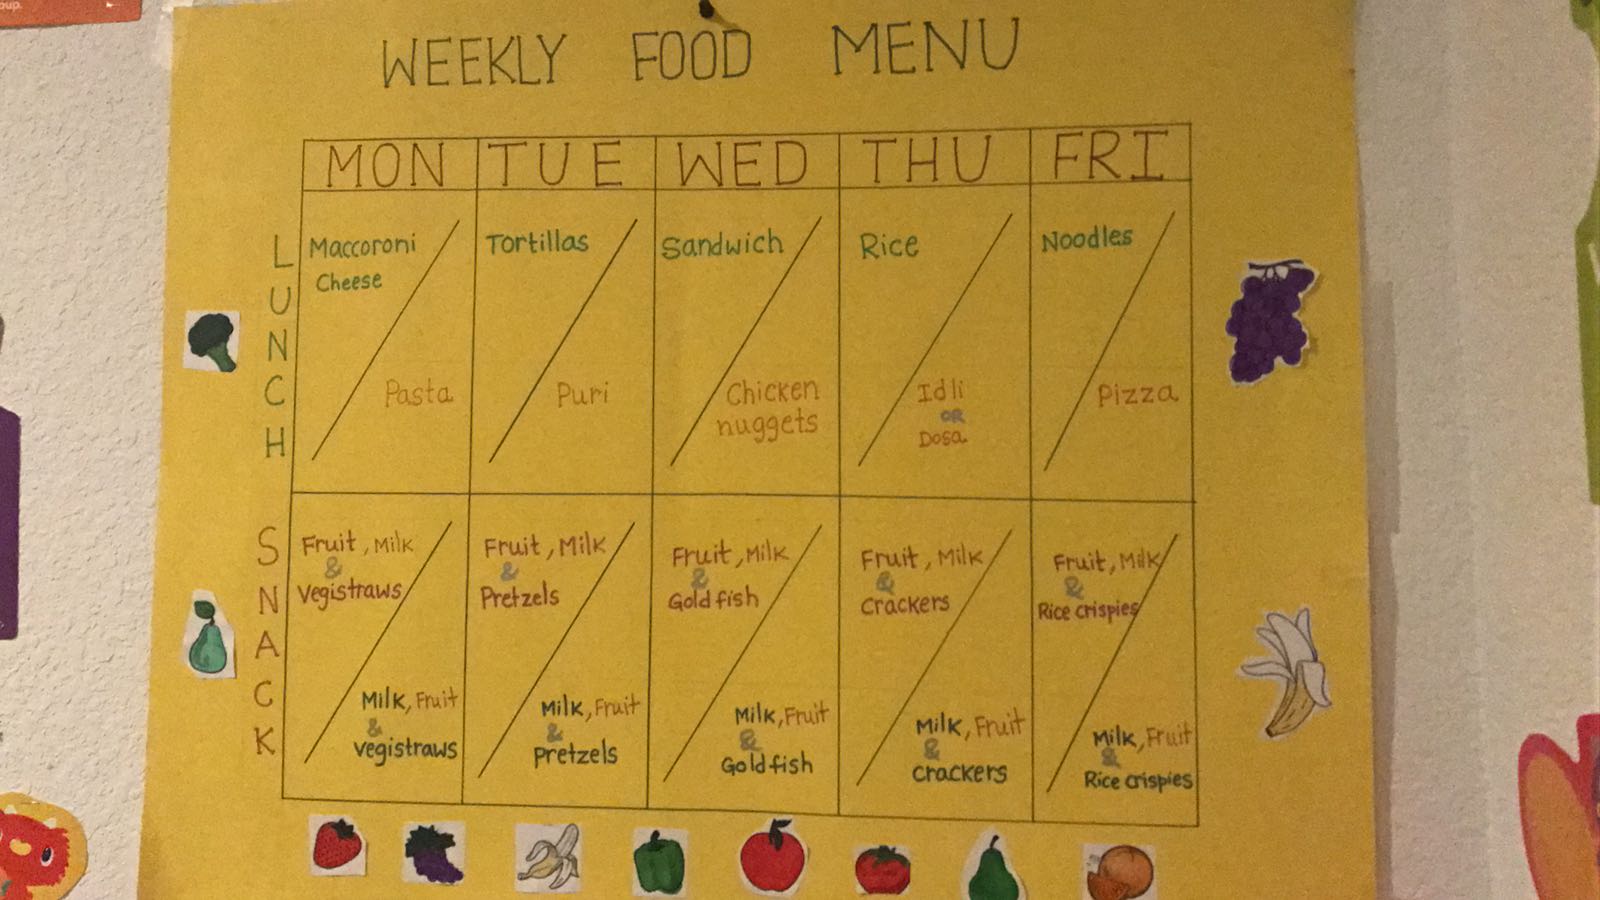 oup.
WEEKLY FOOD MENU
MON TUE WED THU FRI
LUNCH
Maccoroni
Cheese
Pasta
Tortillas
Puri
Sandwich
Chicken
nuggets
Rice
Idli
OR
Dosa
Noodles
Pizza
SNACK
Fruit, Milk
&
Vegistraws
Milk, Fruit
&
vegistraws
Fruit, Milk
&
Pretzels
Milk, Fruit
&
pretzels
Fruit, Milk
&
Gold fish
Milk, Fruit
&
Gold fish
Fruit, Milk
&
crackers
Milk, Fruit
&
crackers
Fruit, Milk
&
Rice crispies
Milk, Fruit
&
Rice crispies